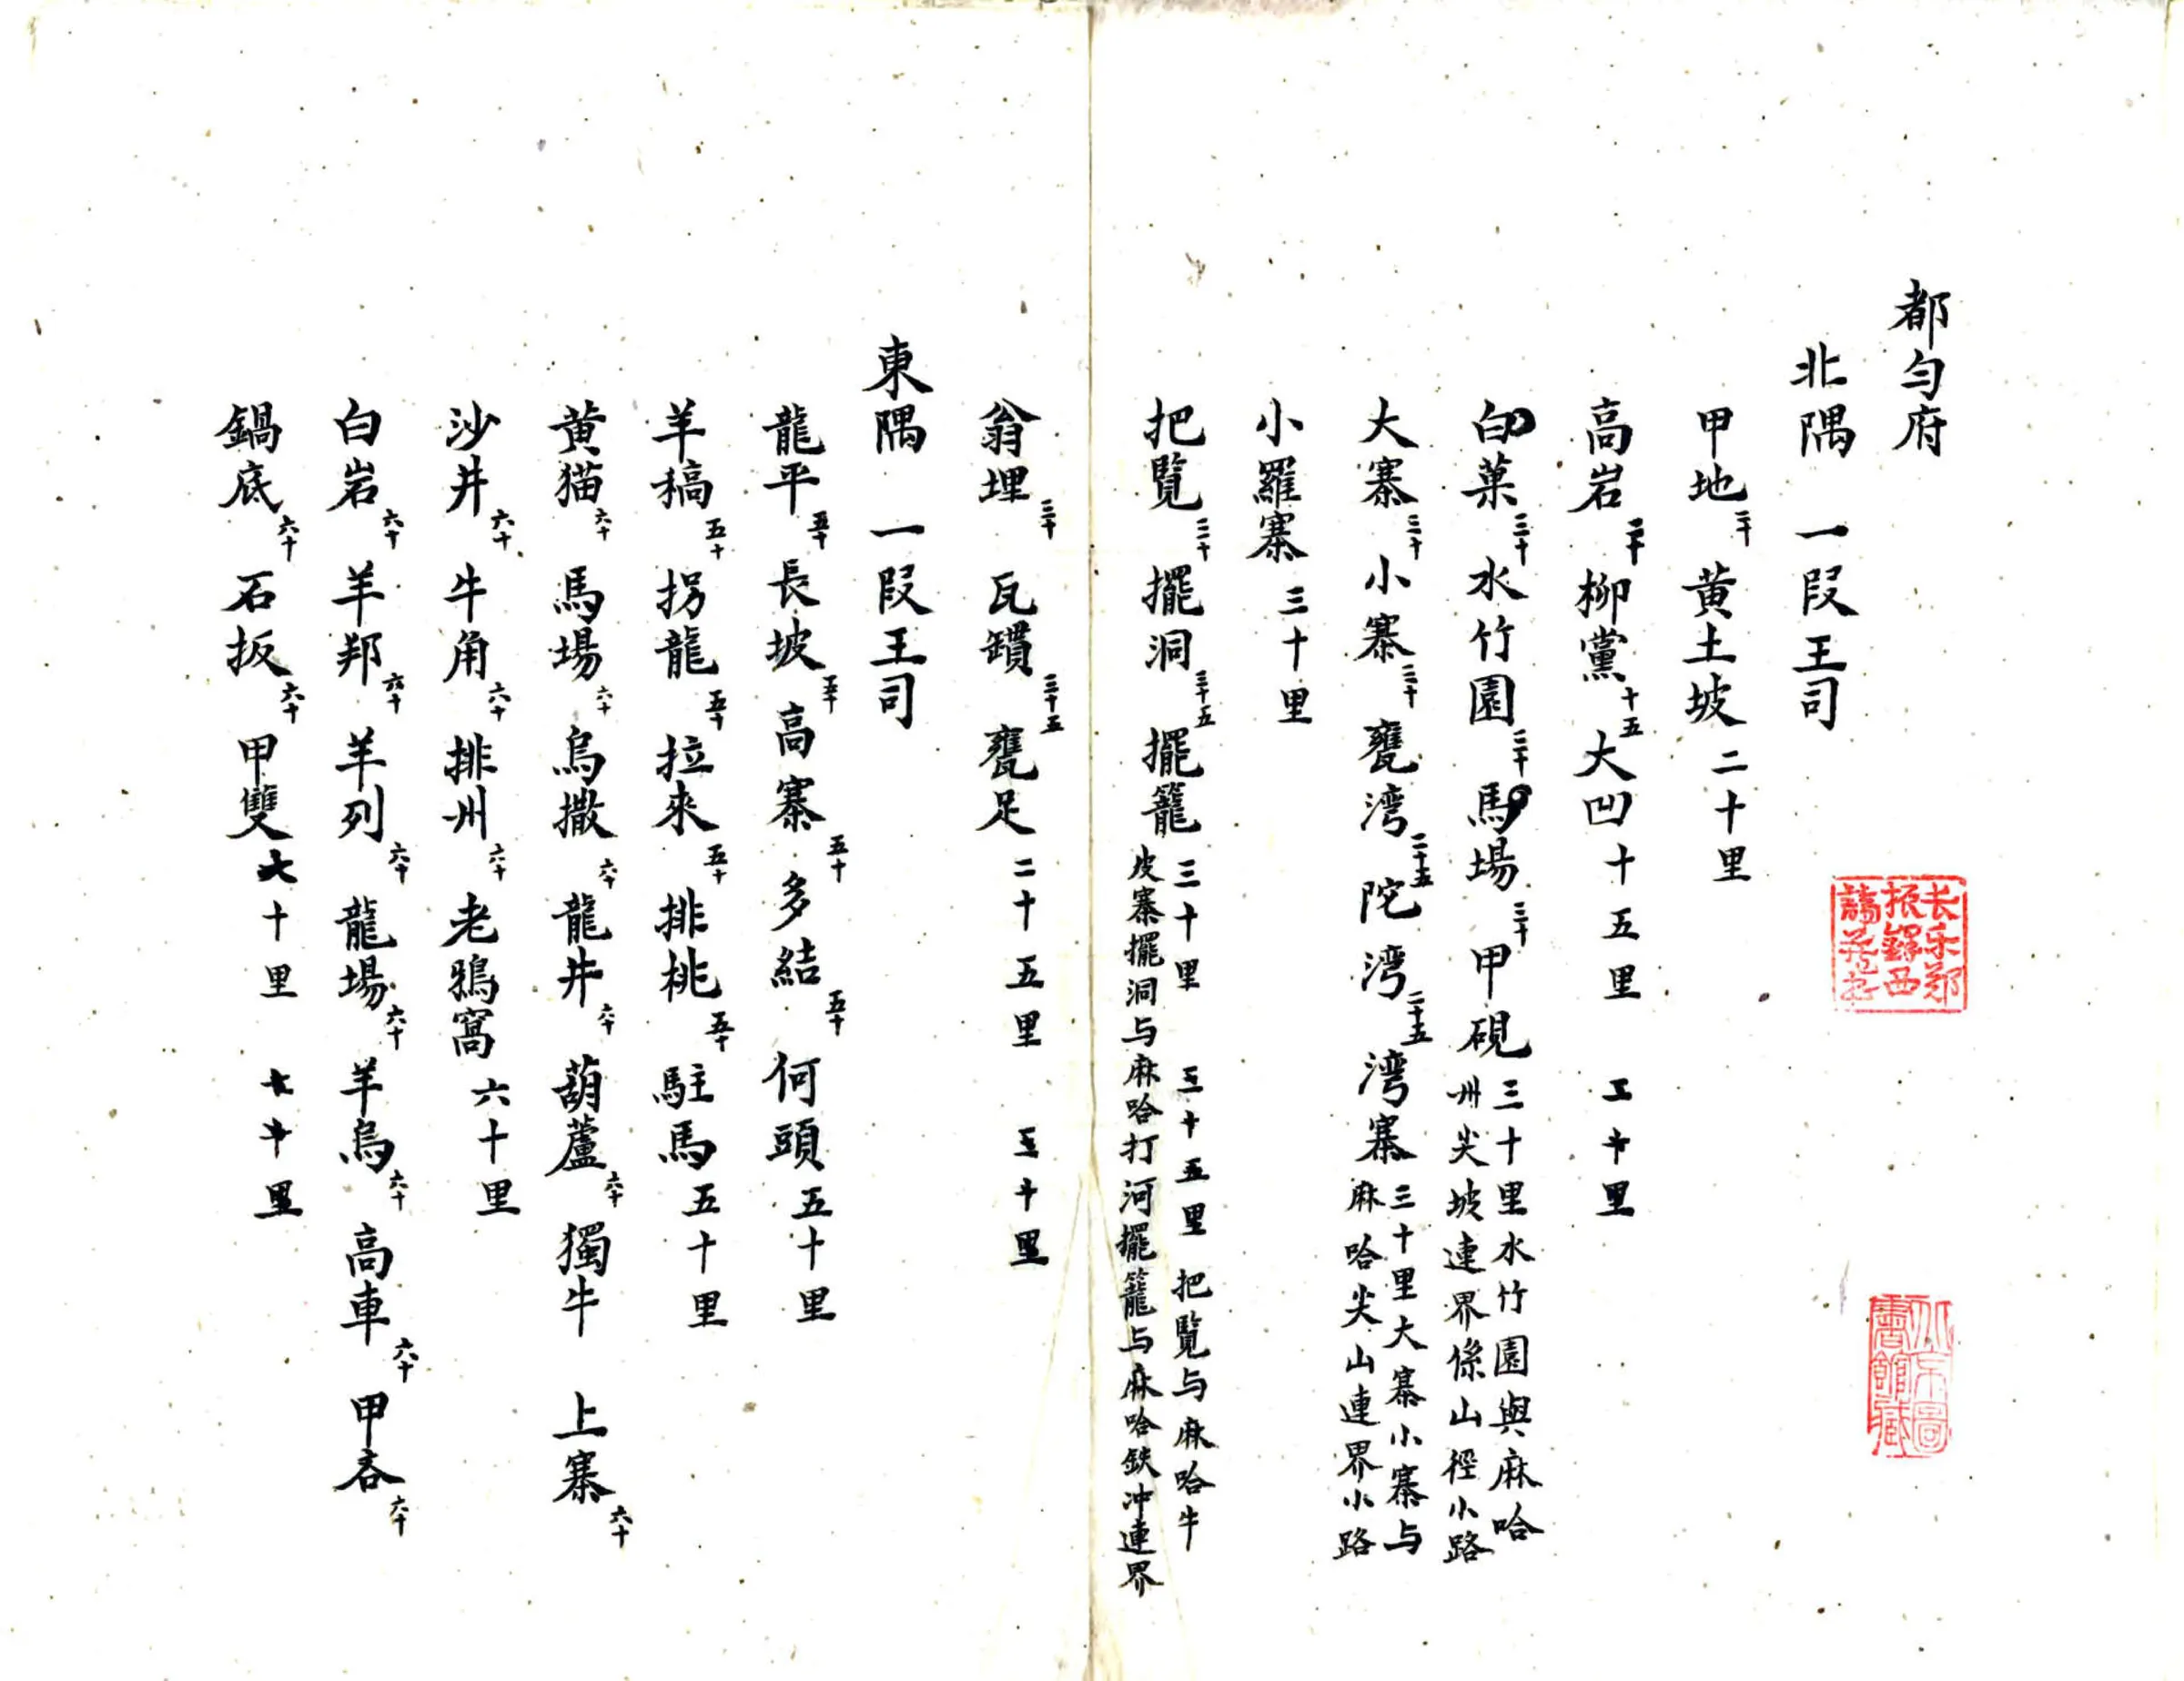 都匀府
北隅 一段王司
甲地二十 黄土坡二十里
高岩二十 柳黨十五 大凹十五里 二十里
白菓三十 水竹園三十 馬場三十 甲硯三十里水竹園與麻哈
州尖坡連界係山徑小路
大寨三十 小寨三十 甕湾二十五 陀湾二十五 湾寨三十里大寨小寨与
麻哈尖山連界小路
小羅寨三十里
把覽三十 擺洞三十五 擺籠三十里 三十五里 把覽与麻哈牛
皮寨擺洞与麻哈打河擺籠与麻哈鉄冲連界
翁埋三十 瓦鑽三十五 甕足二十五里 三十里
東隅 一段王司
龍平五十 長坡五十 高寨五十 多結五十 何頭五十里
羊稿五十 拐龍五十 拉來五十 排桃五十 駐馬五十里
黄猫六十 馬場六十 烏撒六十 龍井六十 葫蘆六十 獨牛 上寨六十
沙井六十 牛角六十 排州六十 老鴉窩六十里
白岩六十 羊邦六十 羊列六十 龍場六十 羊烏六十 高車六十 甲吝六十
鍋底六十 石扳六十 甲雙六十里 七十里
长乐郑
振鐸西
諦藏书
北京圖
書館藏